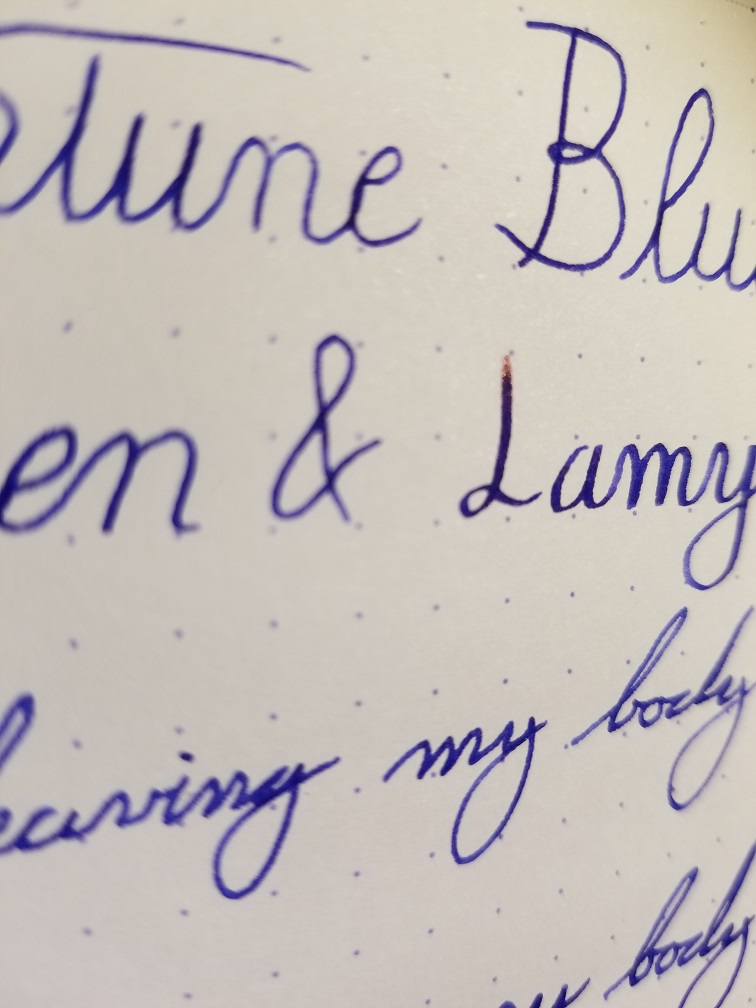 etune Blu
en & Lamy
eaving my body
my body